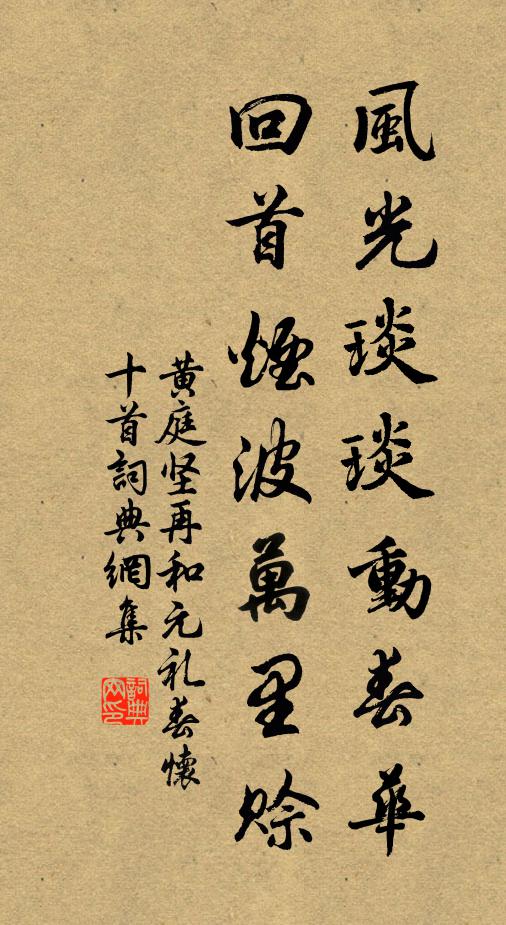 風光琰琰動春華
回首煙波萬里賒
黄庭坚再和元礼春懷
十首詞典網集
詞典
网印